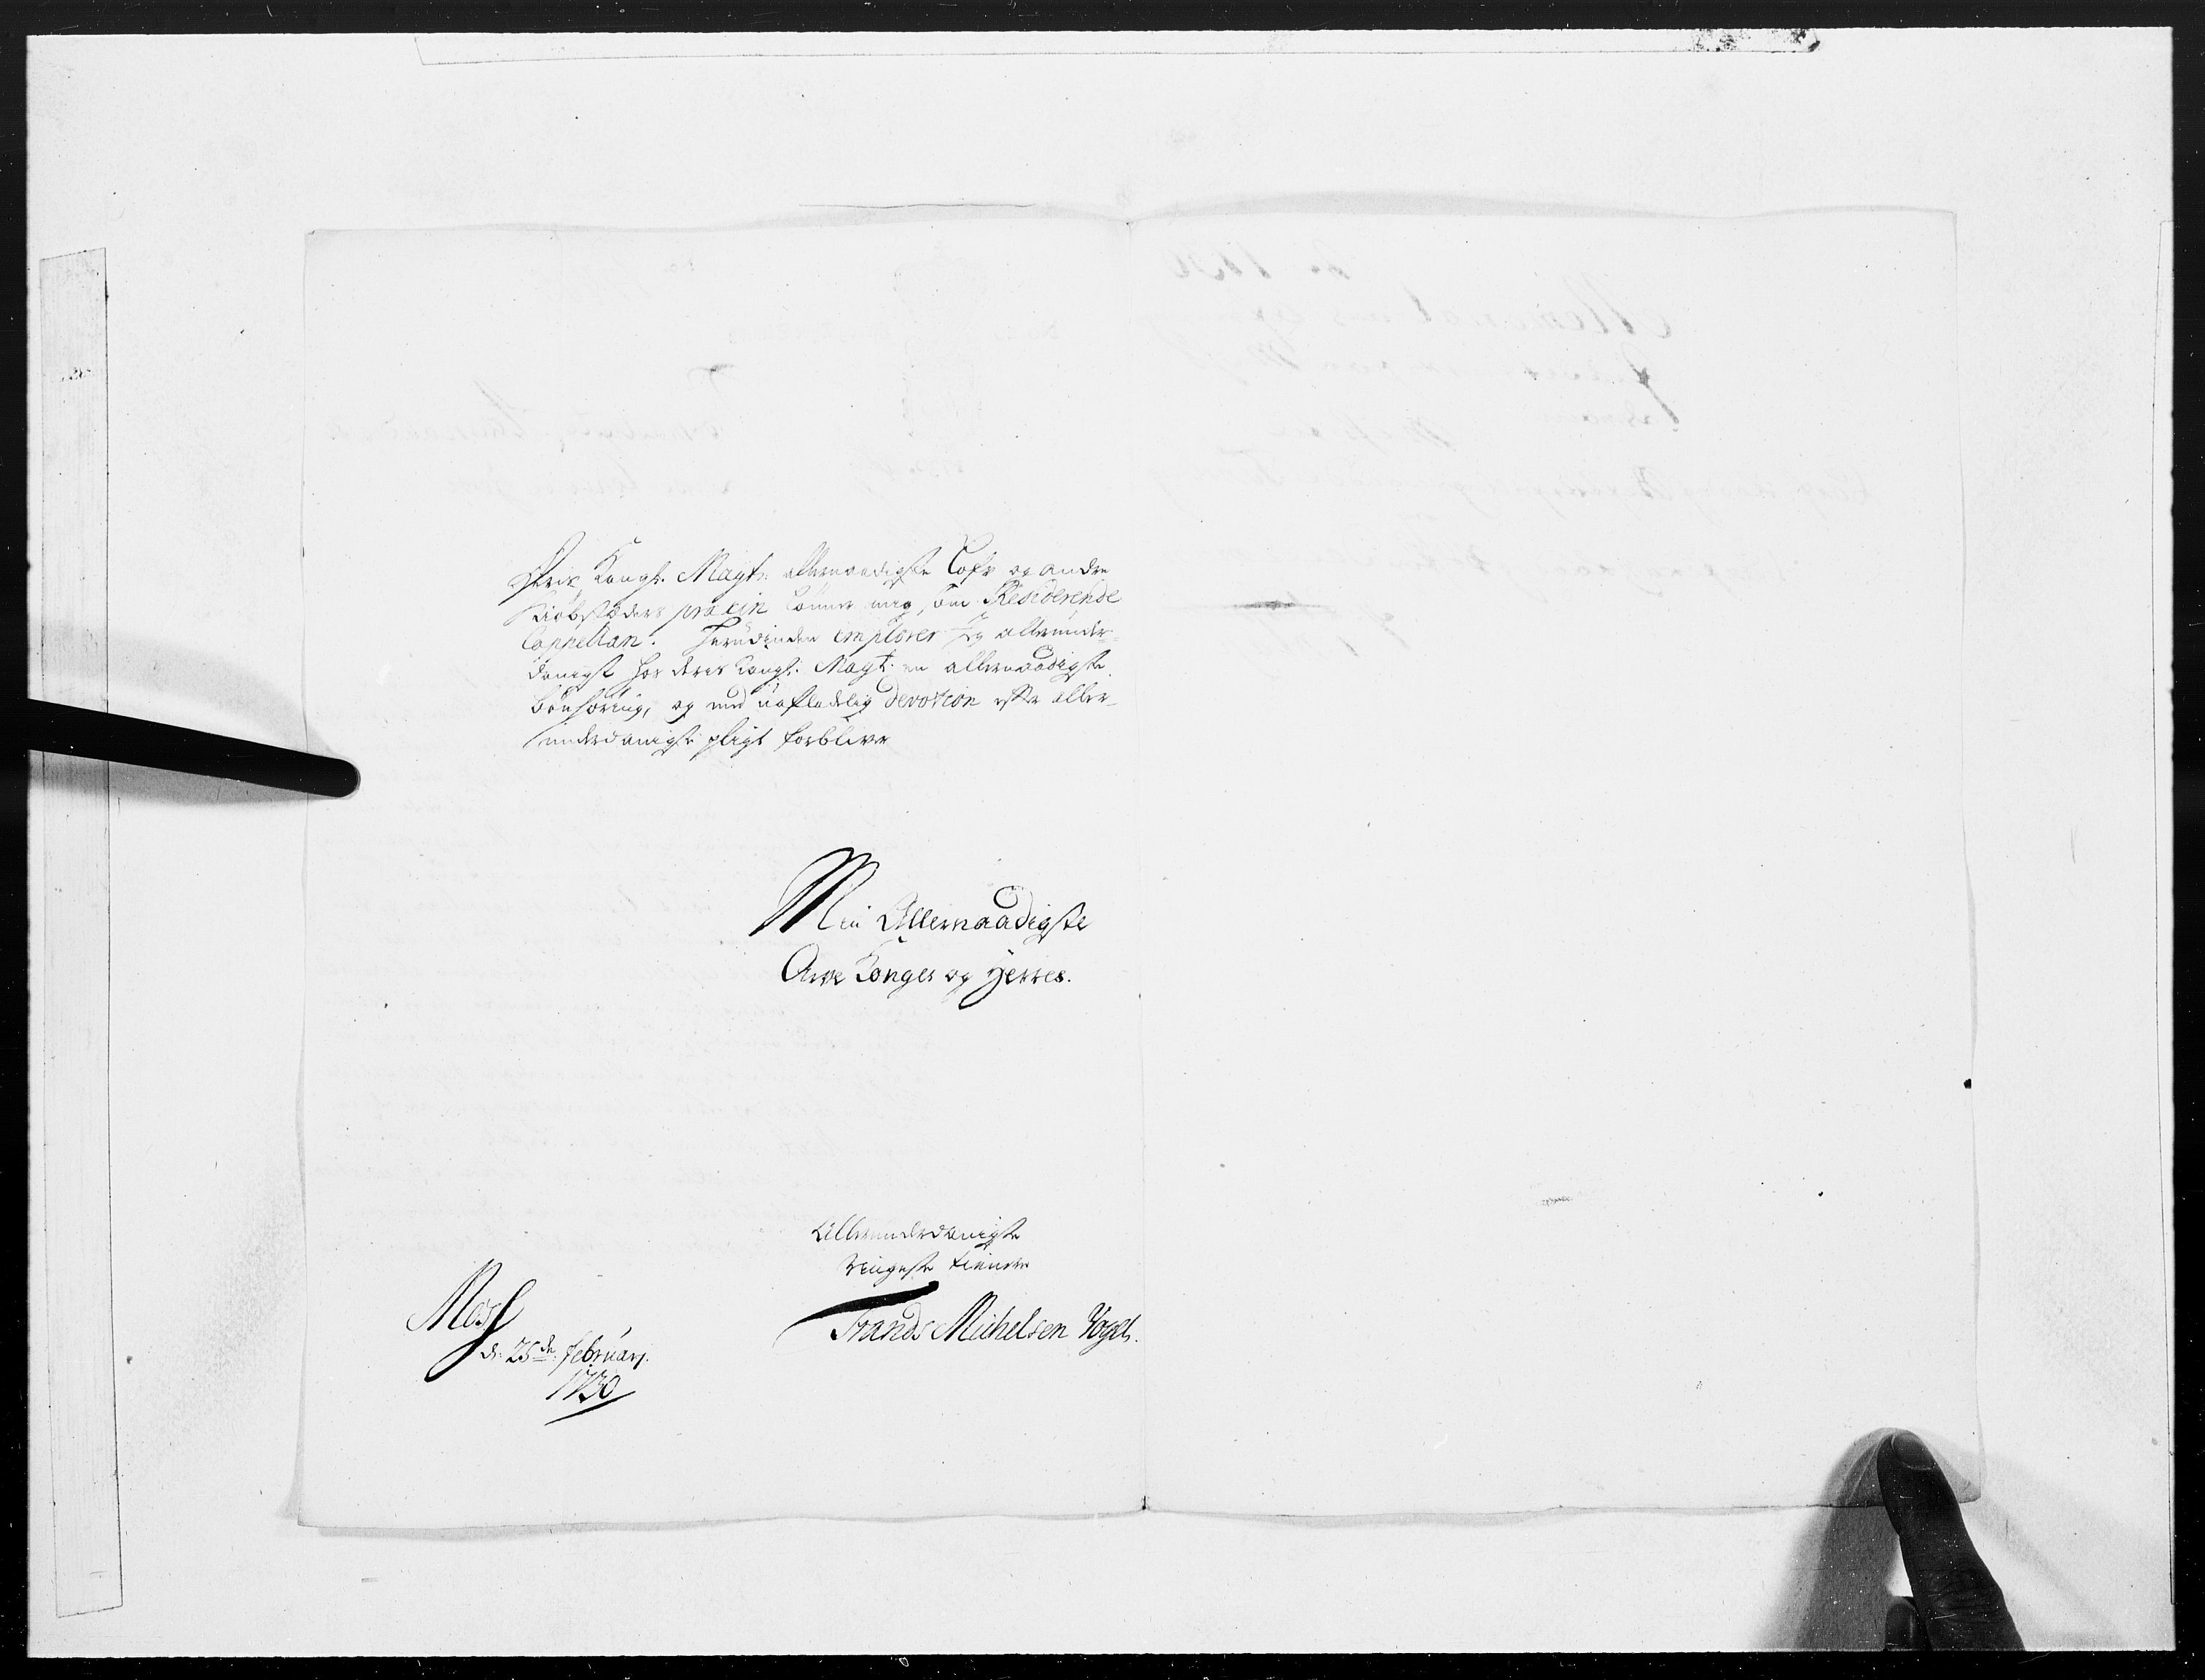 Deris Kongl. Mayts: allernaadigste Lofv og andre
Kiøbstæders praxin kommer mig, som Residerende
Cappellan. Herudinden implorer Jeg allerunder-
danigst hos deres Kongl: Mayt: en allernaadigste
bønhøring, og med uafladelig devotion efter aller-
underdanigste pligt forbliver
Min Allernaadigste
Arve Konges og Herres.
Allerunderdanigste
ringeste tienere
Frands Michelsen Vogel.
Moss
d: 25de februarj.
1730